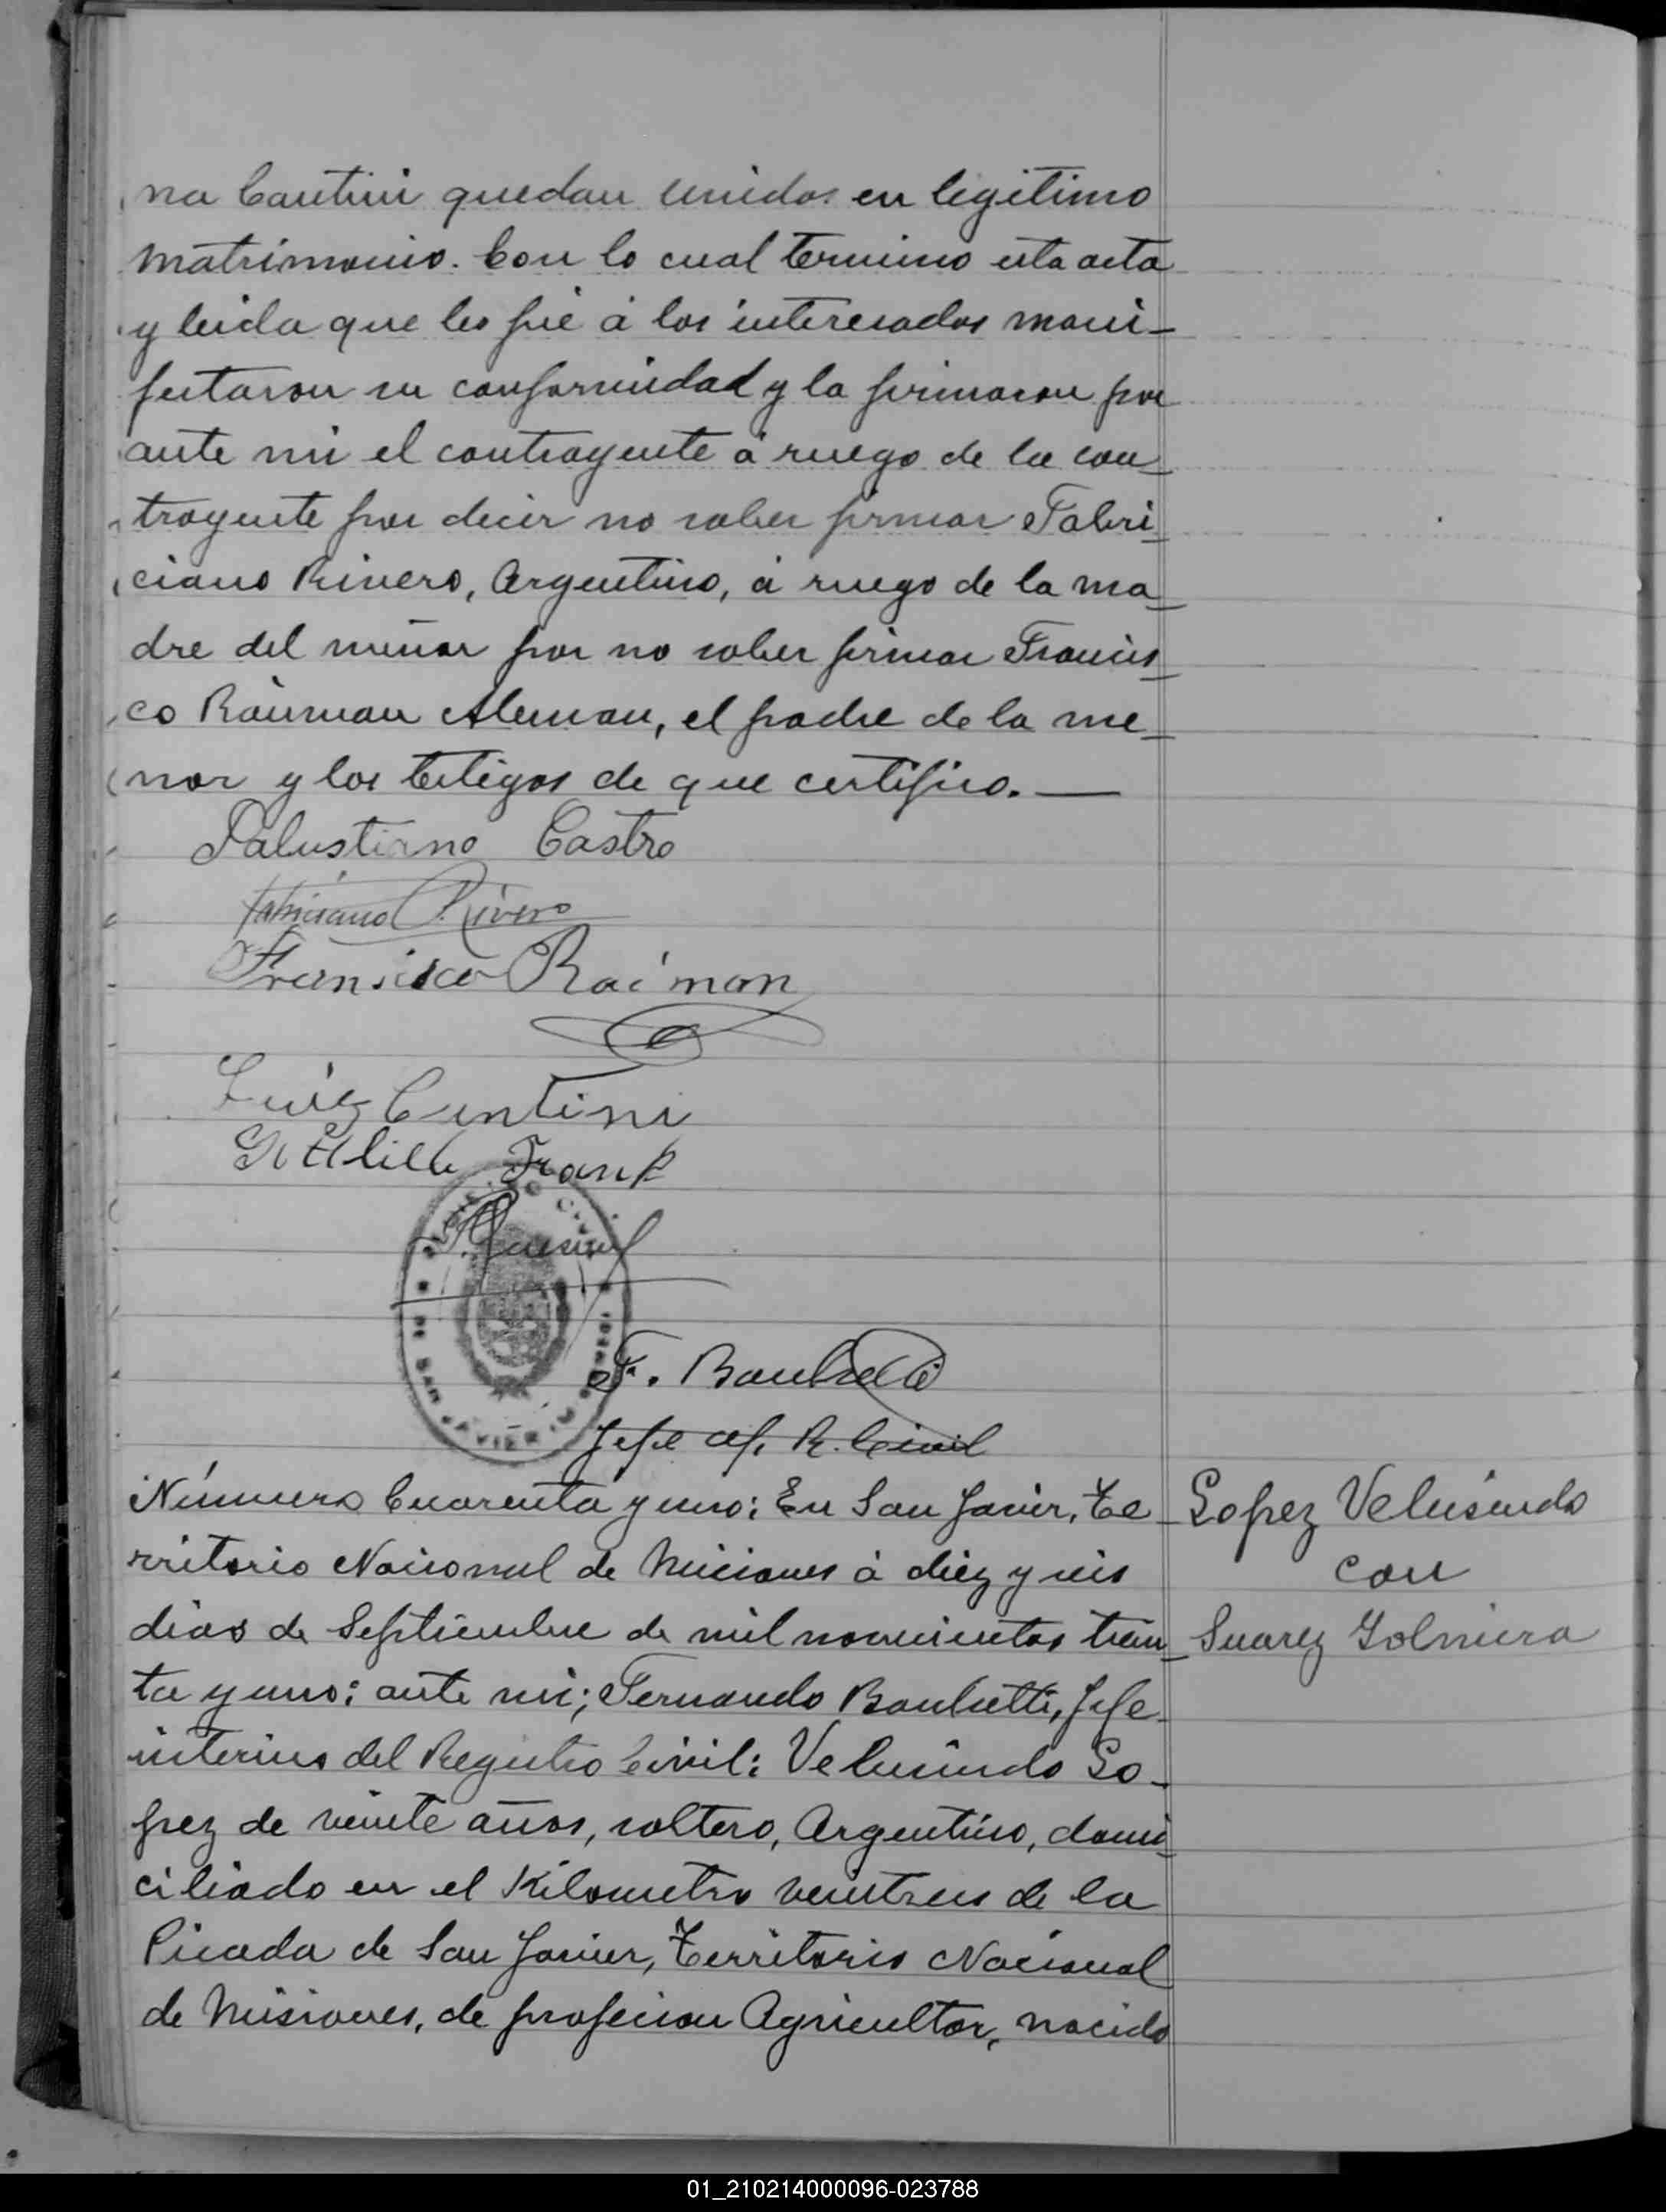 na Cantini quedan unidos en legitimo
matrimonio. Con lo cual termino esta acta
y leida que les fué á los interesados mani-
festaron su conformidad y la firmaron por
ante mi el contrayente á ruego de la con-
trayente por decir no saber firmar Fabri-
ciano Rivero, Argentino, á ruego de la ma-
dre del menor por no saber firmar Francis-
co Raiman Aleman, el padre de la me-
nor y los testigos de que certifico. —
Salustiano Castro
Fabriciano Rivero
Fransisco Raiman
Luiz Cantini
Gottlieb Frank
DE SAN JAVIER
F.
Jefe of. R. Civil
Número Cuarenta y uno: En San Javier, Te-
rritorio Nacional de Misiones á diez y seis
dias de Septiembre de mil novecientos trein-
ta y uno: ante mi; Fernando Jefe
interino del Registro Civil: Velusindo Lo-
pez de veinte años, soltero, Argentino, domi-
ciliado en el Kilometro veintres de la
Picada de San Javier, Territorio Nacional
de Misiones, de profesion Agricultor, nacido
Lopez Velusindo
con
Suarez
01_210214000096-023788